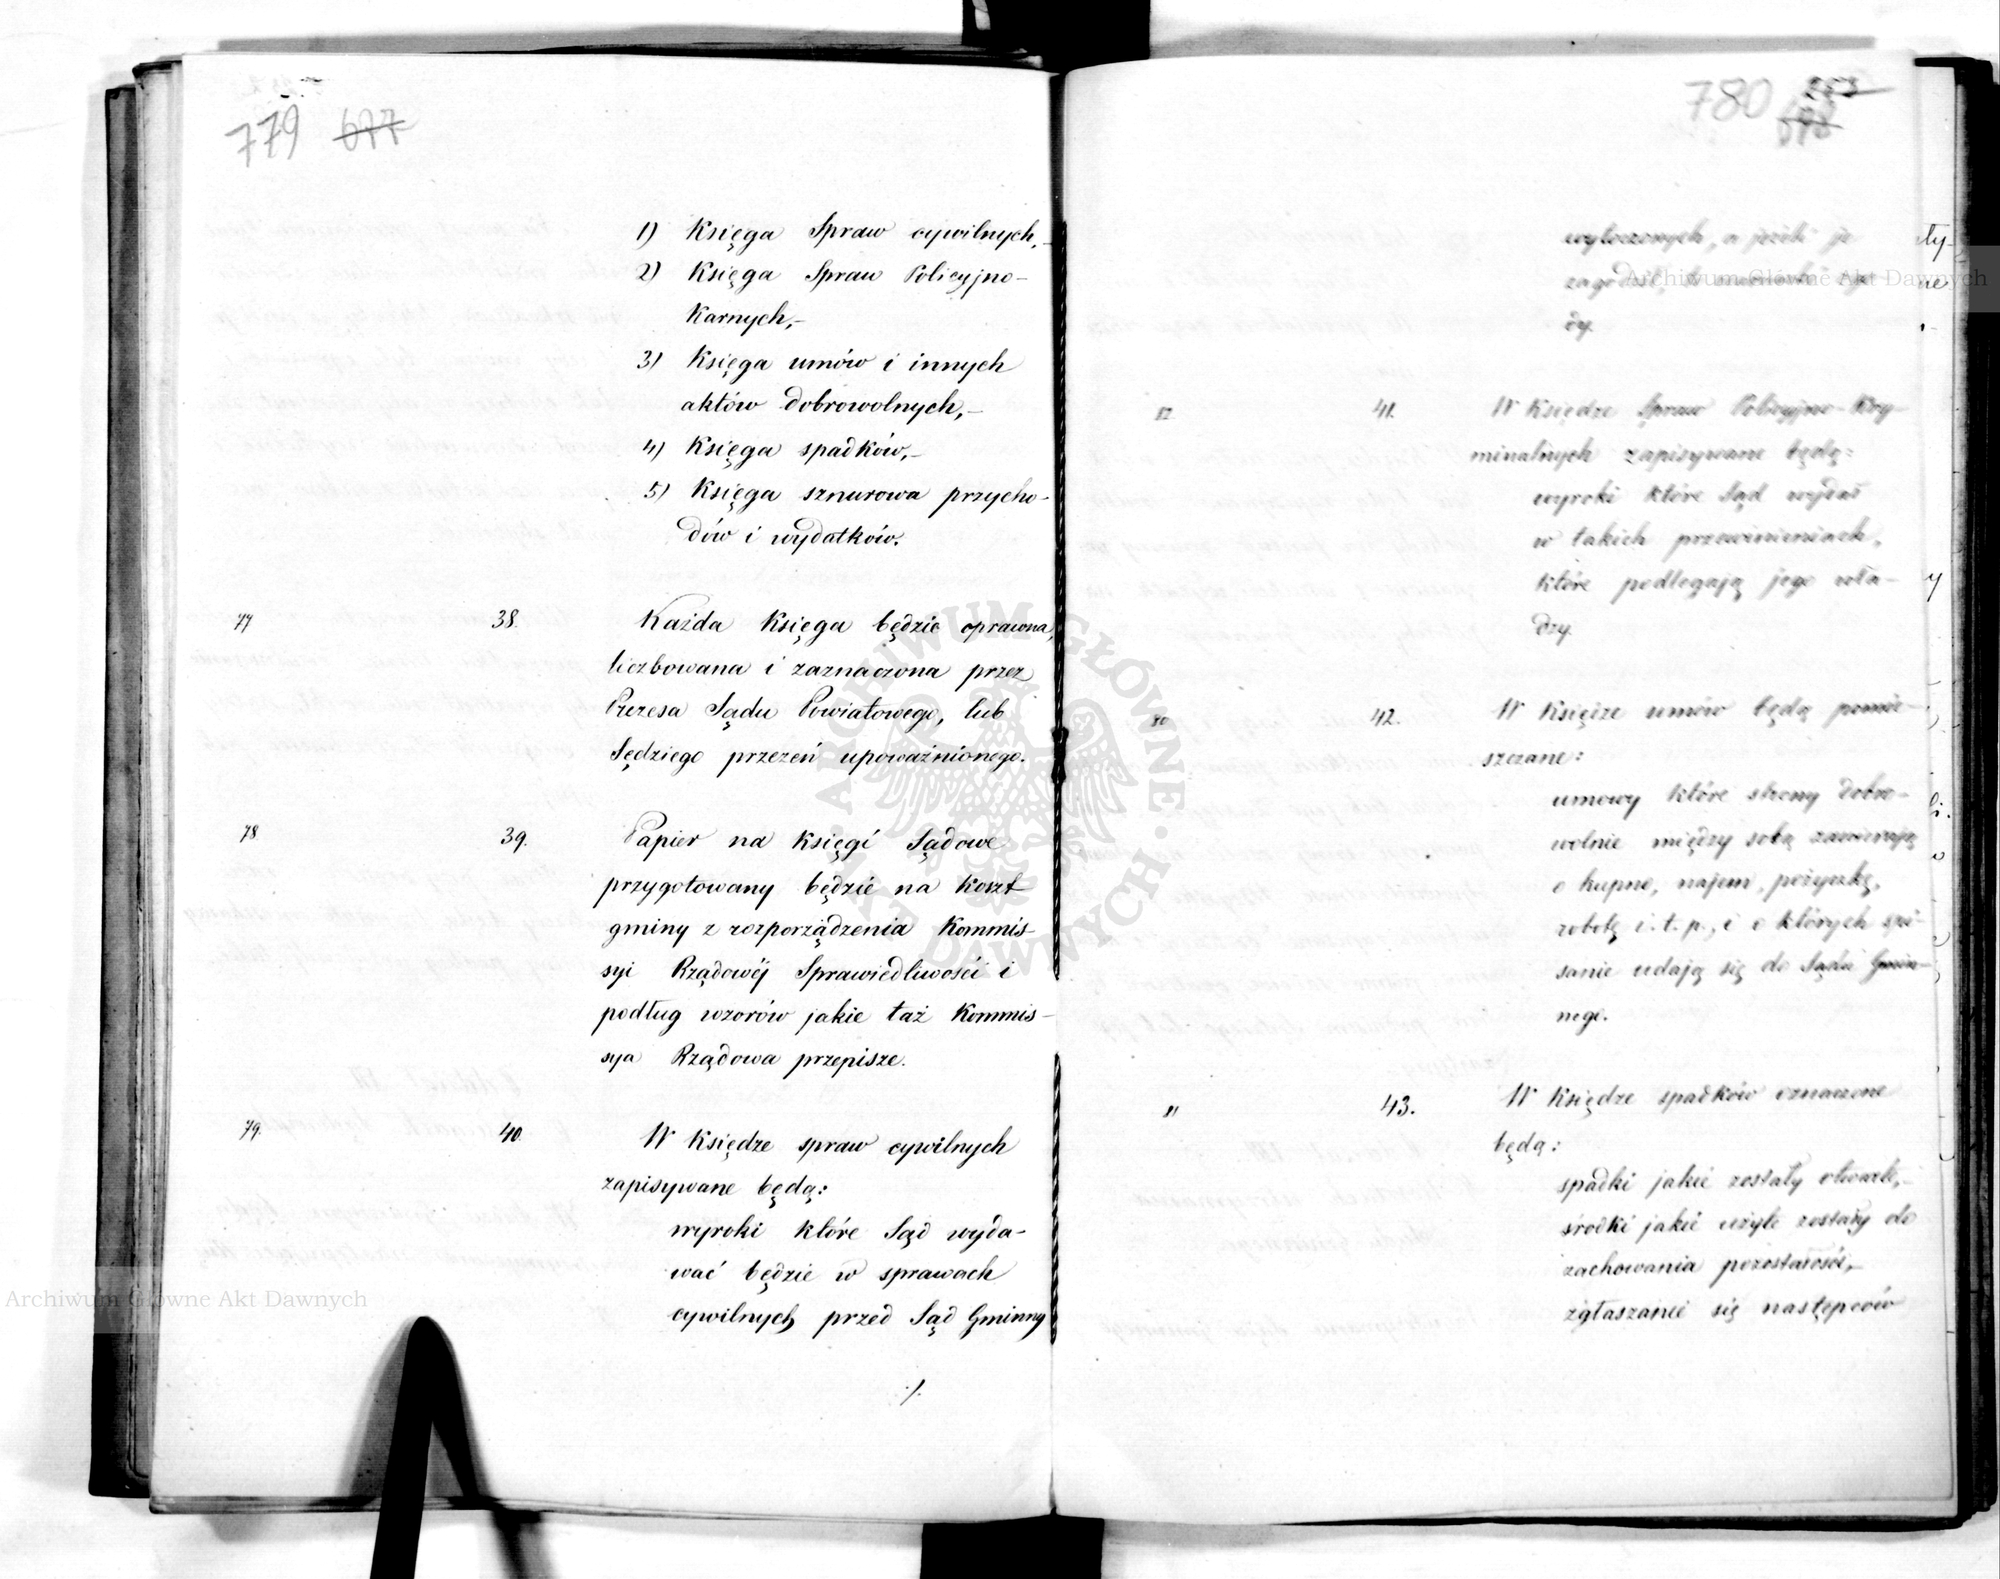 779 677
1) Księga Spraw cywilnych,-
2) Księga Spraw Policyjno-
Karnych,-
3) Księga umów i innych
aktów dobrowolnych,-
4) Księga spadków,-
5) Księga sznurowa przycho-
dów i wydatków.
77 38. Każda Księga będzie oprawna,
liczbowana i zaznaczona przez
Prezesa Sądu Powiatowego, lub
Sędziego przezeń upoważnionego.
78 39. Papier na Księgi Sądowe
przygotowany będzie na koszt
gminy z rozporządzenia Kommis-
syi Rządowéj Sprawiedliwości i
podług wzorów jakie taż Kommis-
sya Rządowa przepisze.
79. 40. W Księdze spraw cywilnych
zapisywane będą:
wyroki które Sąd wyda-
wać będzie w sprawach
cywilnych przed Sąd Gminny
./.
780
wytoczonych, a jeżeli je
dy.
41. W Księdze Spraw Policyjno-Kry-
minalnych zapisywane będą:
wyroki które Sąd wydał
w takich przewinieniach,
które podlegają jego wła-
dzy.
80 42. W Księdze umów będą pomie-
szczane:
umowy które strony dobro-
wolnie między sobą zawierają
o kupno, najem, pożyczkę,
robotę i. t. p., i o których spi-
sanie udają się do Sądu Gmin-
nego.
81 43. W Księdze spadków oznaczone
będą:
spadki jakie zostały otwarte,-
środki jakie użyte zostały do
zachowania pozostałości,-
zgłaszanie się następców
Archiwum Główne Akt Dawnych
Archiwum Główne Akt Dawnych
ARCHIWUM GŁÓWNE AKT DAWNYCH